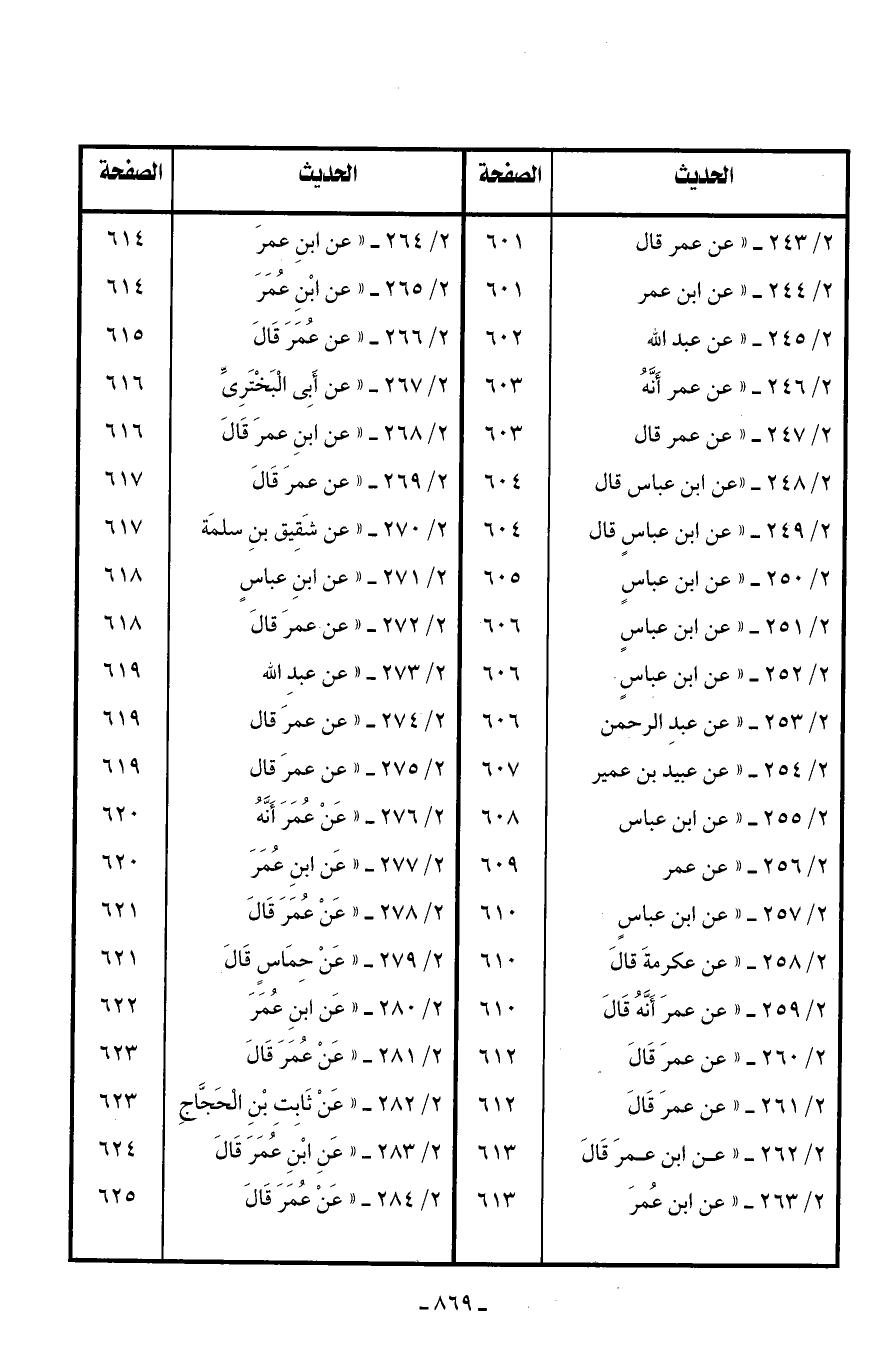 الحديث الصفحة الحديث الصفحة
٢/ ٢٤٣ ـ « عن عمر قال ٦٠١ ٢/ ٢٦٤ ـ « عن ابنِ عمرَ ٦١٤
٢/ ٢٤٤ ـ « عن ابن عمر ٦٠١ ٢/ ٢٦٥ ـ « عن ابْنِ عُمَرَ ٦١٤
٢/ ٢٤٥ ـ « عن عبد الله ٦٠٢ ٢/ ٢٦٦ ـ « عن عُمَرَ قَالَ ٦١٥
٢/ ٢٤٦ ـ « عن عمر أَنَّهُ ٦٠٣ ٢/ ٢٦٧ ـ « عن أَبِى الْبَخْتَرِىِّ ٦١٦
٢/ ٢٤٧ ـ « عن عمر قال ٦٠٣ ٢/ ٢٦٨ ـ « عن ابنِ عمرَ قَالَ ٦١٦
٢/ ٢٤٨ ـ «عن ابن عباس قال ٦٠٤ ٢/ ٢٦٩ ـ « عن عمرَ قَالَ ٦١٧
٢/ ٢٤٩ ـ « عن ابن عباسٍ قال ٦٠٤ ٢/ ٢٧٠ ـ « عن شَقِيق بنِ سلمَة ٦١٧
٢/ ٢٥٠ ـ « عن ابن عباسٍ ٦٠٥ ٢/ ٢٧١ ـ « عن ابنِ عباسٍ ٦١٨
٢/ ٢٥١ ـ « عن ابن عباسٍ ٦٠٦ ٢/ ٢٧٢ ـ « عن عمرَ قالَ ٦١٨
٢/ ٢٥٢ ـ « عن ابن عباسٍ ٦٠٦ ٢/ ٢٧٣ ـ « عن عبدِ الله ٦١٩
٢/ ٢٥٣ ـ « عن عبدِ الرحمن ٦٠٦ ٢/ ٢٧٤ ـ « عن عمرَ قال ٦١٩
٢/ ٢٥٤ ـ « عن عبيد بن عمير ٦٠٧ ٢/ ٢٧٥ ـ « عن عمرَ قال ٦١٩
٢/ ٢٥٥ ـ « عن ابن عباس ٦٠٨ ٢/ ٢٧٦ ـ « عَنْ عُمَرَ أَنَّهُ ٦٢٠
٢/ ٢٥٦ ـ « عن عمر ٦٠٩ ٢/ ٢٧٧ ـ « عَن ابنِ عُمَرَ ٦٢٠
٢/ ٢٥٧ ـ « عن ابن عباسٍ ٦١٠ ٢/ ٢٧٨ ـ « عَنْ عُمَرَ قَالَ ٦٢١
٢/ ٢٥٨ ـ « عن عكرمةَ قالَ ٦١٠ ٢/ ٢٧٩ ـ « عَنْ حِمَاسٍ قَالَ ٦٢١
٢/ ٢٥٩ ـ « عن عمرَ أَنَّهُ قَالَ ٦١٠ ٢/ ٢٨٠ ـ « عَن ابنِ عُمَرَ ٦٢٢
٢/ ٢٦٠ ـ « عن عمرَ قَالَ ٦١٢ ٢/ ٢٨١ ـ « عَنْ عُمَرَ قَالَ ٦٢٣
٢/ ٢٦١ ـ « عن عمرَ قَالَ ٦١٢ ٢/ ٢٨٢ ـ « عَنْ ثَابِتِ بْنِ الْحَجَّاجِ ٦٢٣
٢/ ٢٦٢ ـ « عـن ابن عـمرَ قَالَ ٦١٣ ٢/ ٢٨٣ ـ « عَنِ ابْنِ عُمَرَ قَالَ ٦٢٤
٢/ ٢٦٣ ـ « عن ابن عُمرَ ٦١٣ ٢/ ٢٨٤ ـ « عَنْ عُمَرَ قَالَ ٦٢٥
ـ ٨٦٩ ـ